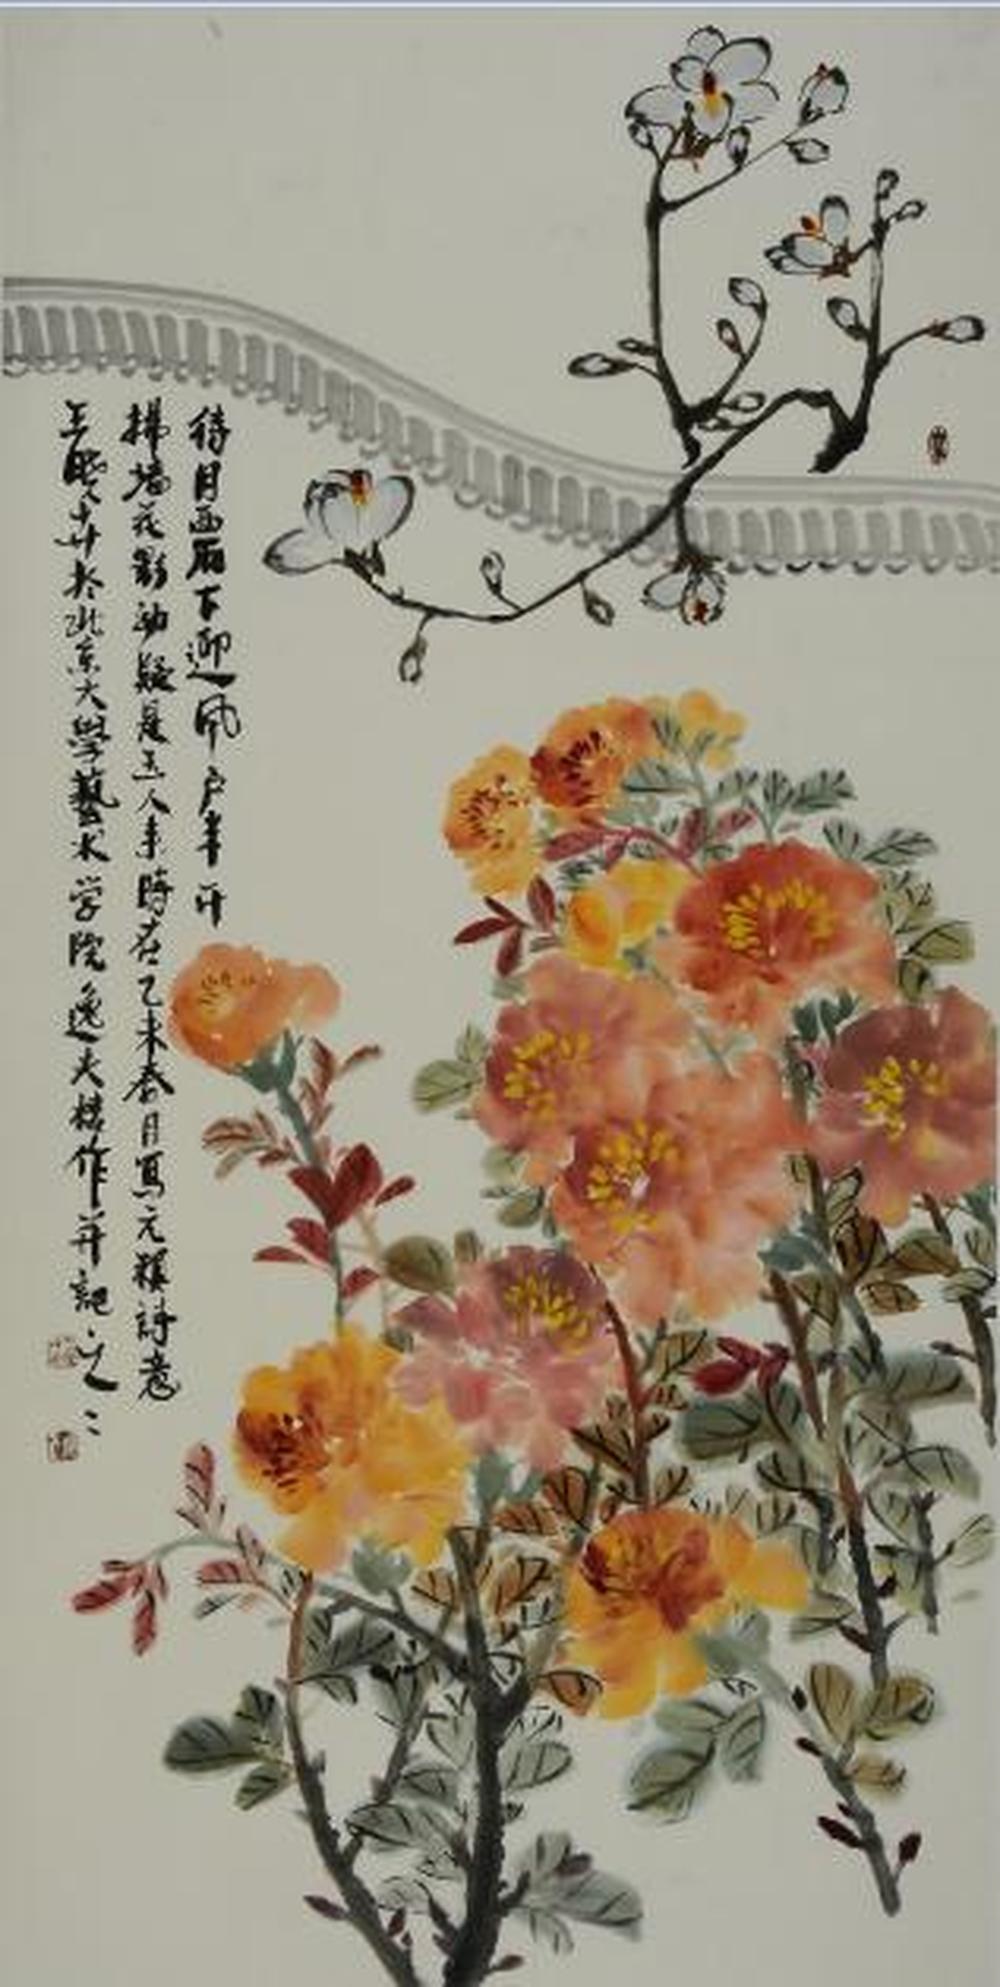 待月西廂下迎風户半开
拂墙花影動疑是玉人来時在乙未春月寫元稹詩意
王晓卉於北京大學藝术学院逸夫楼作并記之